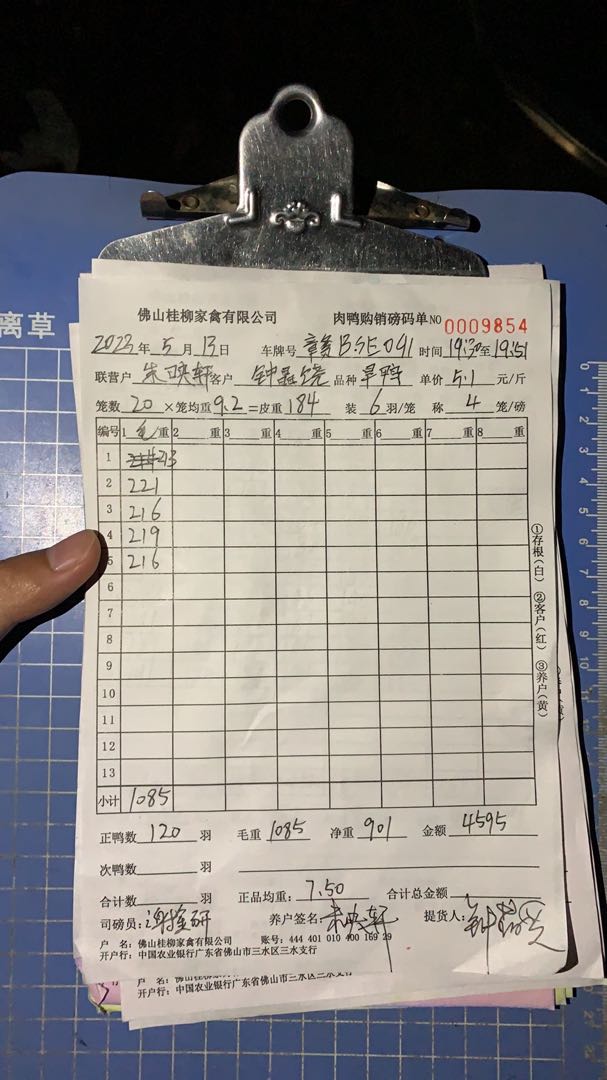 离草
佛山桂柳家禽有限公司 肉鸭购销磅码单NO 0009854
2023年 5 月 13 日 车牌号 BSE091 时间 19:30至19:51
联营户 朱映轩 客户 钟 品种 旱鸭 单价 5.1 元/斤
笼数 20 ×笼均重 9.2 =皮重 184 装 6 羽/笼 称 4 笼/磅
编号 1 毛/重 2 重 3 重 4 重 5 重 6 重 7 重 8 重
1 213
2 221
3 216
4 219
5 216
6
7
8
9
10
11
12
13
小计 1085
①存根(白) ②客户(红) ③养户(黄)
正鸭数 120 羽 毛重 1085 净重 901 金额 4595
次鸭数 羽
合计数 羽 正品均重: 7.50 合计总金额
司磅员: 谢 研 养户签名: 朱映轩 提货人: 钟
户 名: 佛山桂柳家禽有限公司 账号: 444 401 010 400 169 29
开户行: 中国农业银行广东省佛山市三水区三水支行
户 名: 佛山桂柳家禽有限公司
开户行: 中国农业银行广东省佛山市三水区三水支行